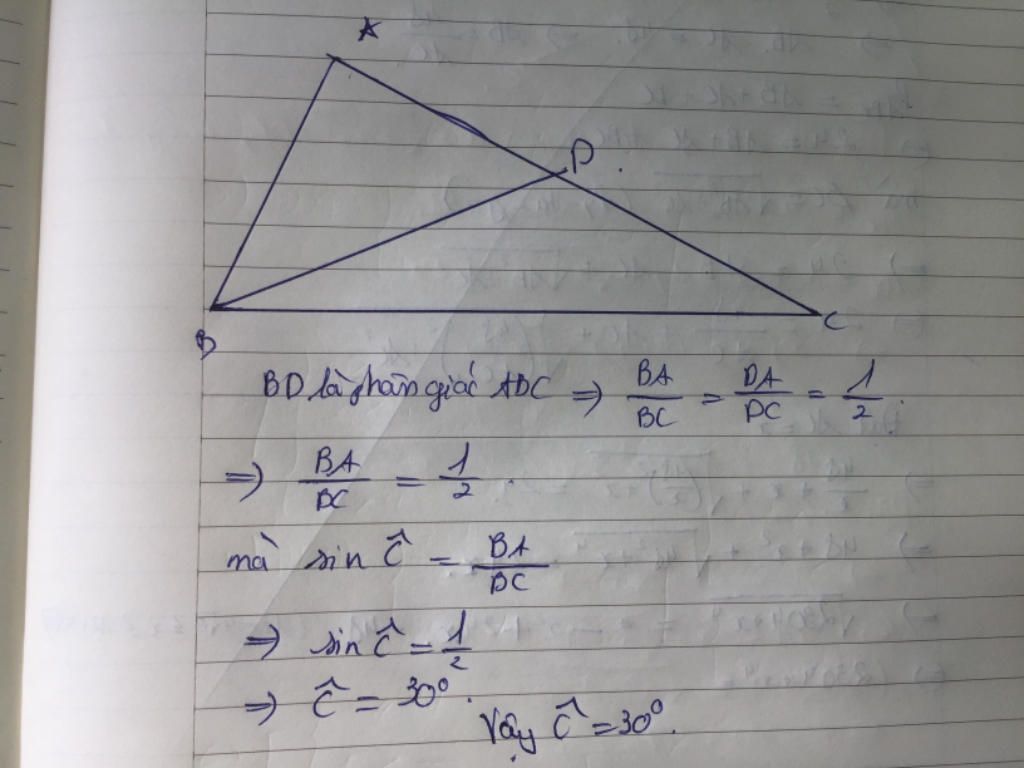 A
D
B
C
BD là phân giác ABC => BA/BC = DA/DC = 1/2.
=> BA/BC = 1/2.
mà sin Ĉ = BA/BC
=> sin Ĉ = 1/2
=> Ĉ = 30°.
Vậy Ĉ = 30°.